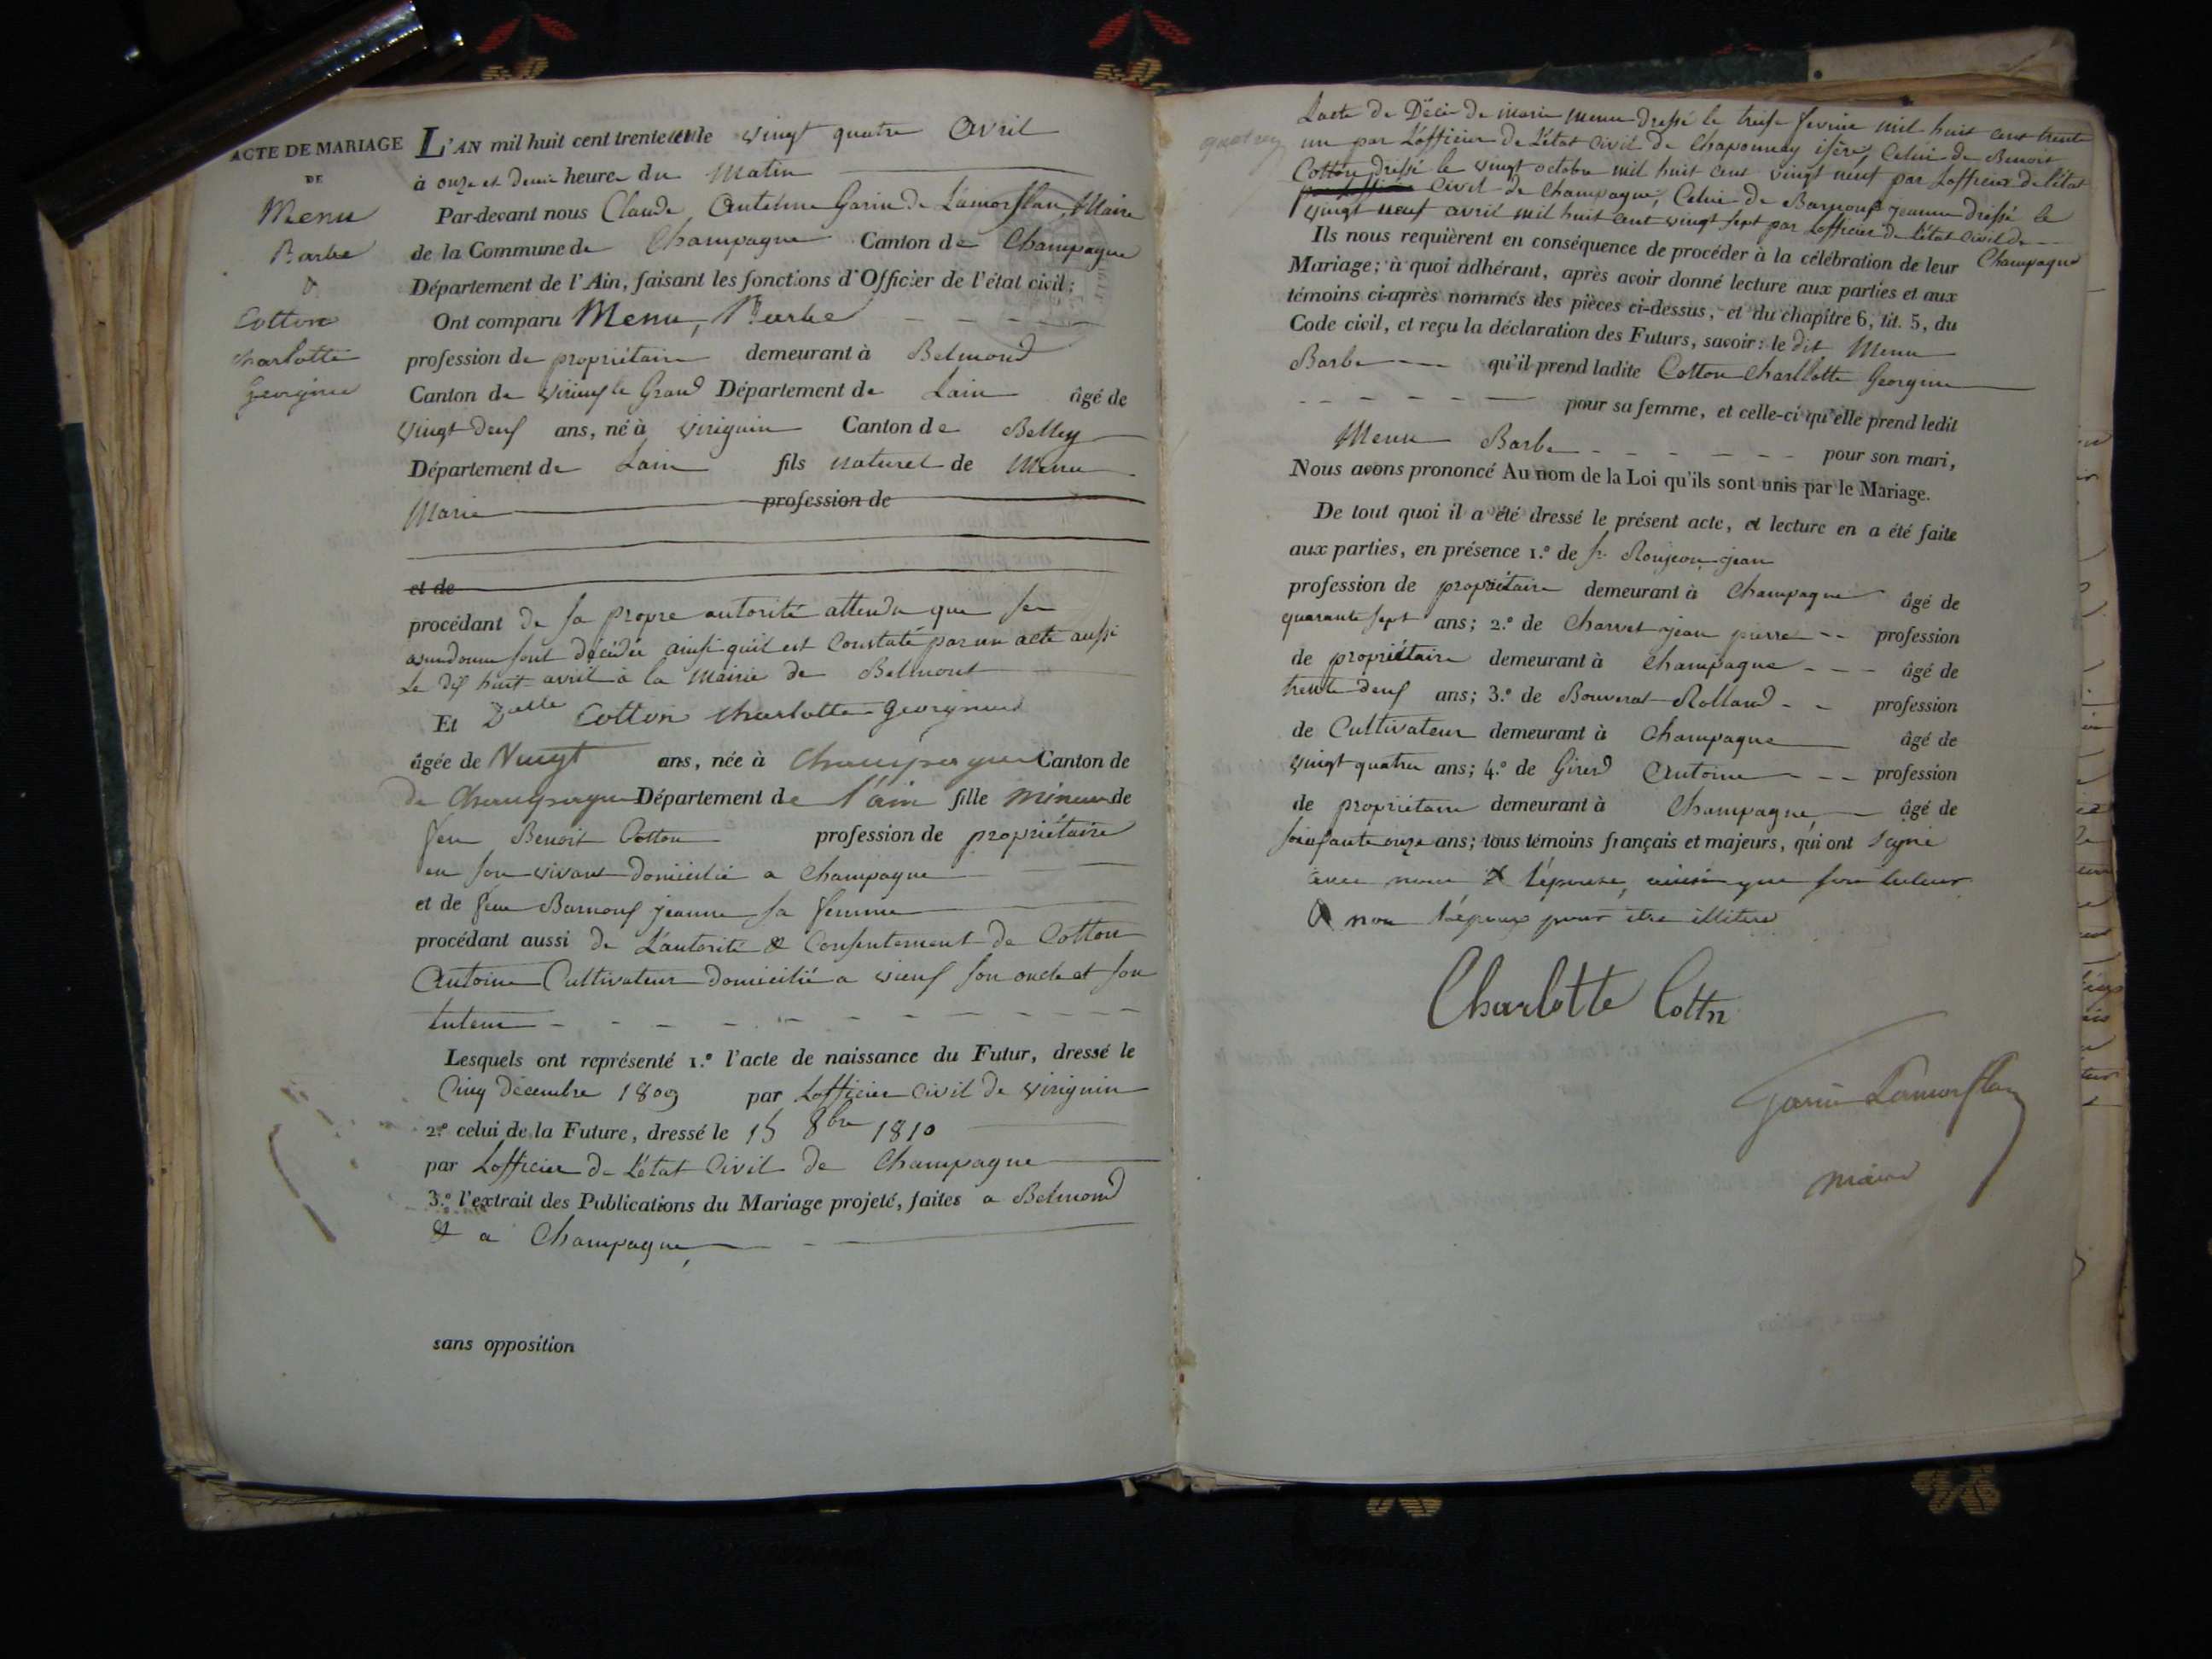 ACTE DE MARIAGE
DE
Menu
Barbe
&
Cotton
charlotte
Georgine
L'AN mil huit cent trente et un le vingt quatre Avril
à onze et demie heure du Matin
Par-devant nous Claude Antelme Garin de Lamorflan, Maire
de la Commune de Champagne Canton de Champagne
Département de l'Ain, faisant les fonctions d'Officier de l'état civil;
Ont comparu Menu, Barbe
profession de propriétaire demeurant à Belmond
Canton de virieux le Grand Département de Lain âgé de
vingt deux ans, né à virignin Canton de Belley
Département de Lain fils naturel de Menu
Marie profession de
et de
procédant de sa propre autorité attendu que ses
ascendants sont décédés ainsi qu'il est Constaté par un acte aussi
Le dix huit avril à la Mairie de Belmont
Et Dlle Cotton charlotte Georgine
âgée de Vingt ans, née à Champagne Canton de
de Champagne Département de l'ain fille mineure de
feu Benoit Cotton profession de propriétaire
en son vivant domicilié a Champagne
et de feue Barnoux jeanne sa femme
procédant aussi de L'autorité & Consentement de Cotton
Antoine Cultivateur domicilié a vieux son oncle et son
tuteur
Lesquels ont représenté 1.º l'acte de naissance du Futur, dressé le
Cinq décembre 1809 par Lofficier Civil de virignin
2.º celui de la Future, dressé le 15 8bre 1810
par Lofficier de L'état Civil de Champagne
3.º l'extrait des Publications du Mariage projeté, faites a Belmond
& a Champagne,
sans opposition
Lacte de Décès de Marie Menu dressé le treize fevrier mil huit cent trente
un par L'officier de L'état Civil de Chaponnay isère, Celui de Benoit
Cotton dressé le vingt octobre mil huit cent vingt neuf par Lofficier de l'état
Civil de Champagne, Celui de Barnoux jeanne dressé le
vingt neuf avril mil huit cent vingt sept par Lofficier de l'état Civil de
Champagne
Ils nous requièrent en conséquence de procéder à la célébration de leur
Mariage; à quoi adhérant, après avoir donné lecture aux parties et aux
témoins ci-après nommés des pièces ci-dessus, et du chapitre 6, tit. 5, du
Code civil, et reçu la déclaration des Futurs, savoir: le dit Menu
Barbe qu'il prend ladite Cotton Charllotte Georgine
pour sa femme, et celle-ci qu'elle prend ledit
Menu Barbe pour son mari,
Nous avons prononcé Au nom de la Loi qu'ils sont unis par le Mariage.
De tout quoi il a été dressé le présent acte, et lecture en a été faite
aux parties, en présence 1.º de Sr. Roujeon jean
profession de propriétaire demeurant à Champagne âgé de
quarante sept ans; 2.º de Charvet jean pierre profession
de propriétaire demeurant à Champagne âgé de
trente deux ans; 3.º de Bouverat Rolland profession
de Cultivateur demeurant à Champagne âgé de
vingt quatre ans; 4.º de Girerd Antoine profession
de propriétaire demeurant à Champagne âgé de
soixante onze ans; tous témoins français et majeurs, qui ont signé
avec nous & l'épouse, ainsi que son tuteur
& non l'époux pour être illitéré
Charlotte Cottn
Garin Lamorflan
maire